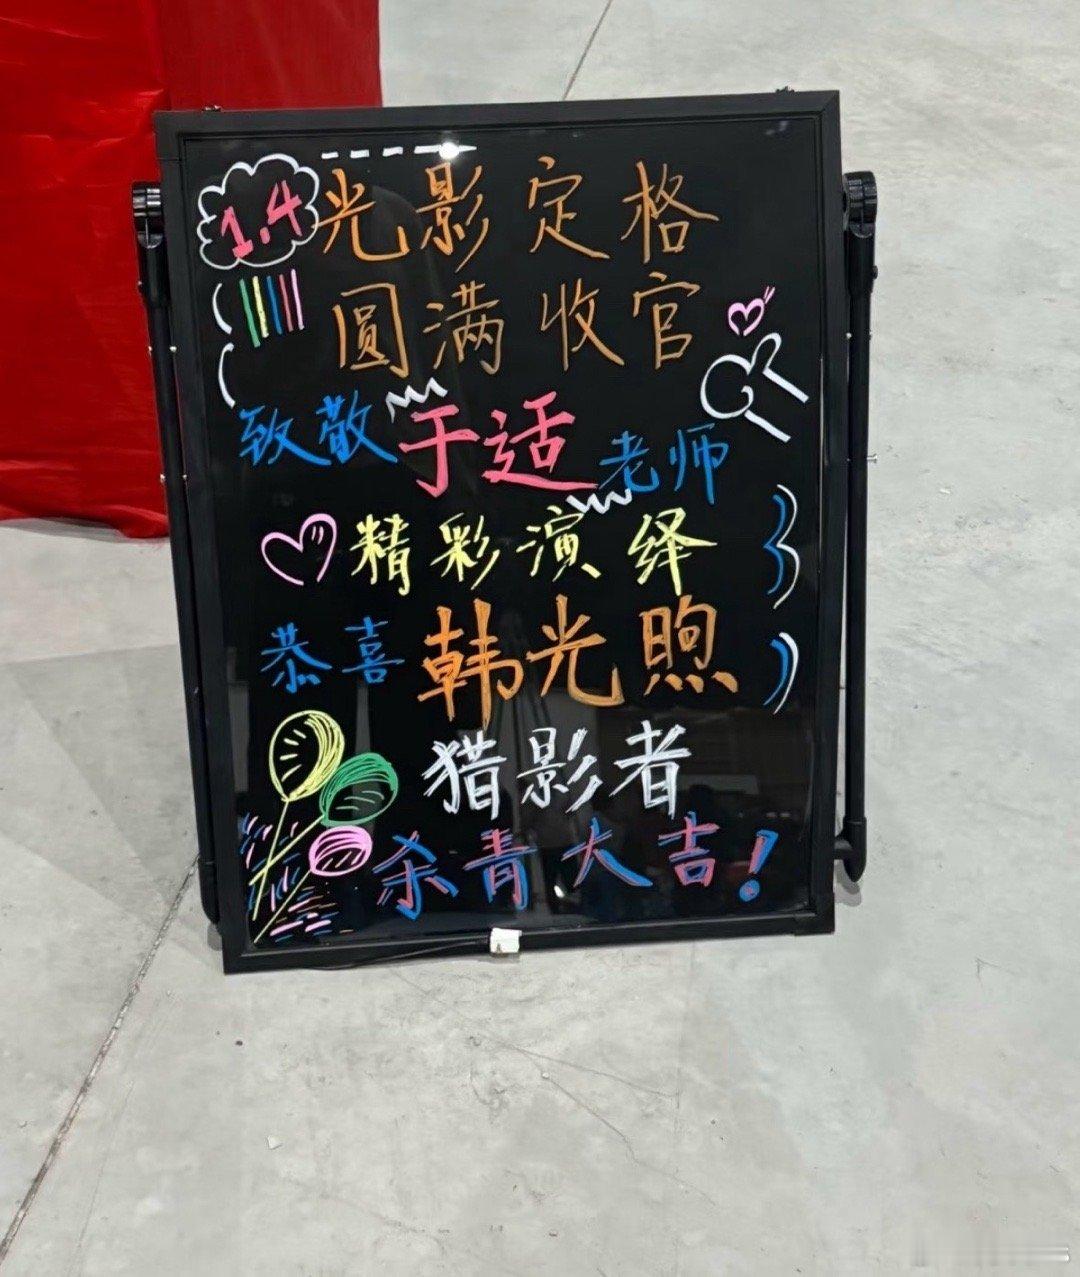 1.4 光影定格
圆满收官
致敬于适老师
精彩演绎
恭喜韩光煦
猎影者
杀青大吉!